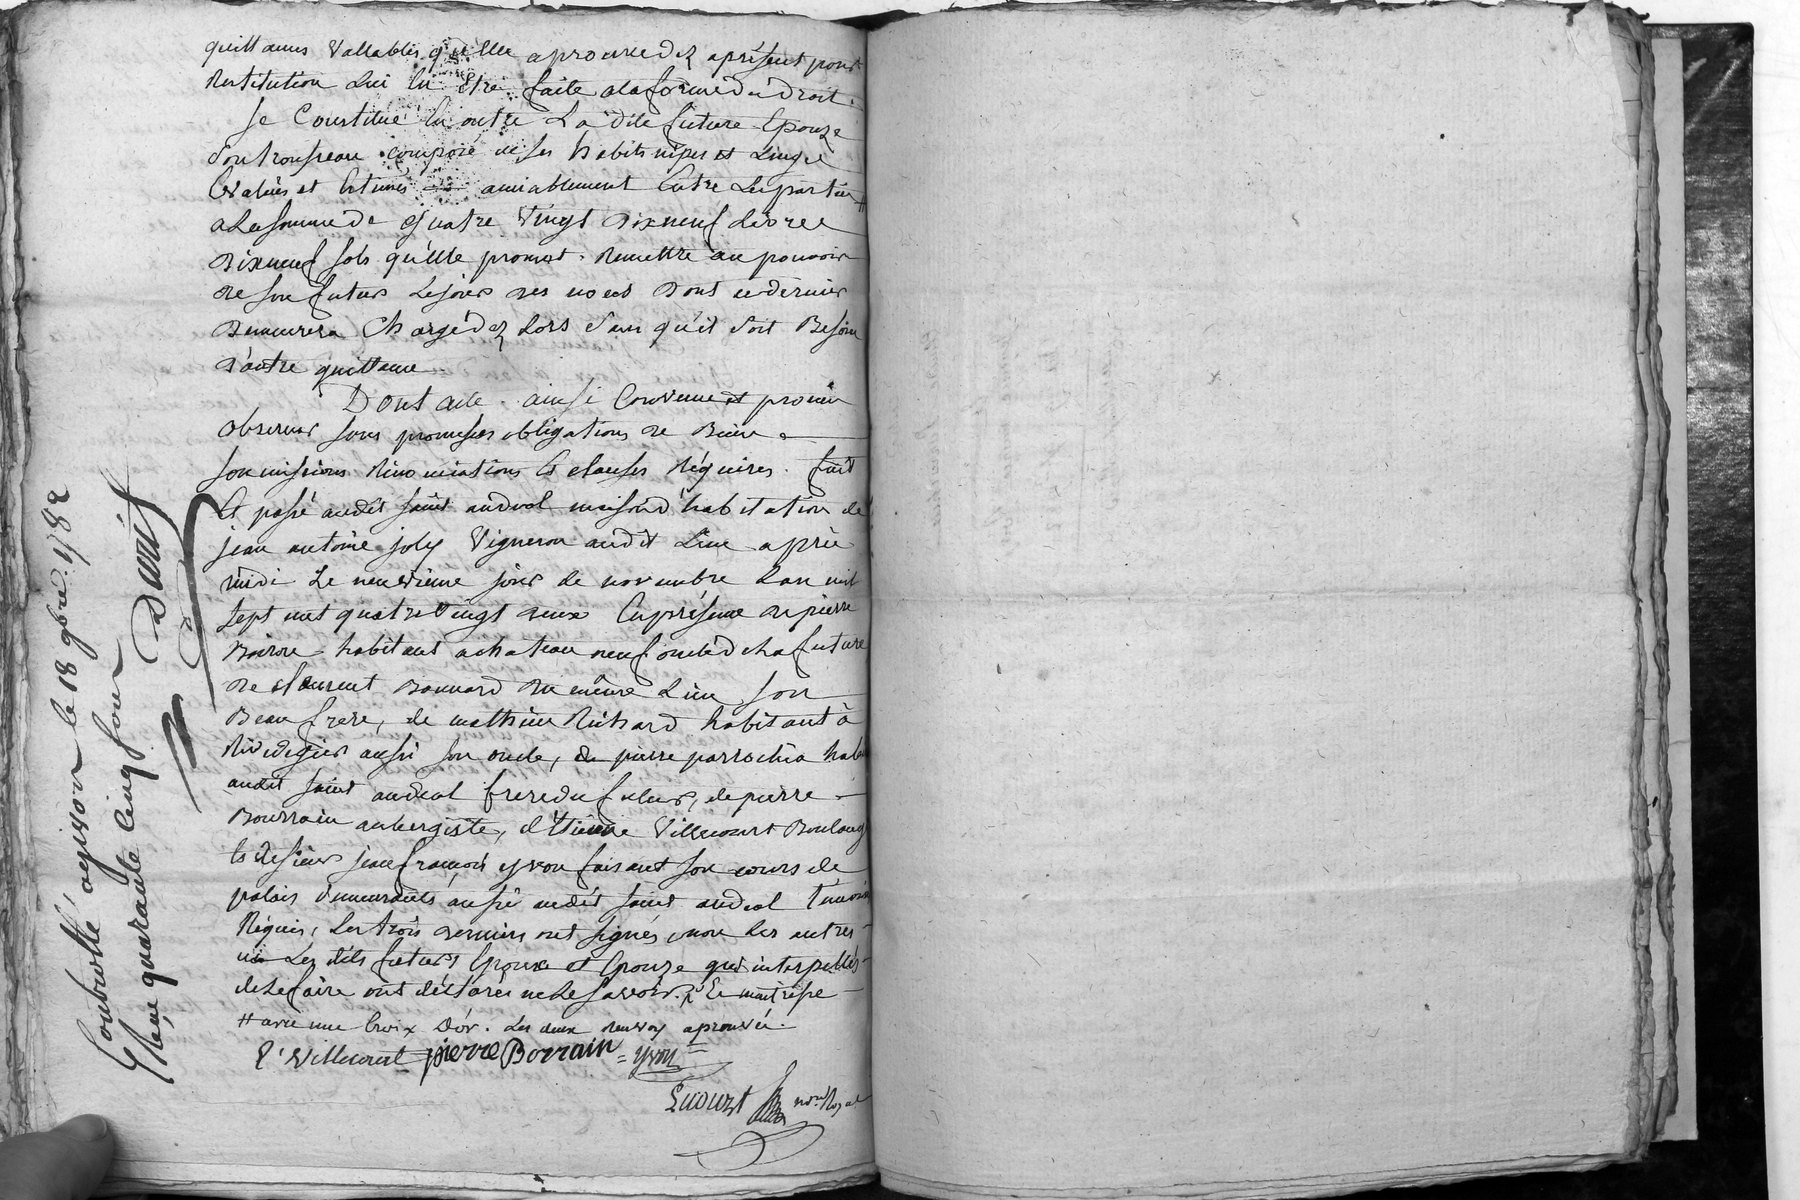 quittances Vallables quelle aprouve dez apresent pour
Restitution Lui En Etre faite alaforme du droit.
Se Constitue En outre La dite future Epouze
Son trousseau composé de ses habits nipes et Linge
Evalués et Estimés amiablement Entre Les parties #
ala somme de quatre Vingt dixneuf Livres
dixneuf sols qu'elle promet Remettre au pouvoir
de son futur Lejour des noces Dont ce dernier
demeurera Chargé dez Lors sans qu'il soit Besoin
d'autre quittance
Dont acte ainsi Convenu et promis
observer sous promesses obligations de Biens
soumissions Renonciations Et clauses Réquises. fait
Et passé audit saint andeol maison d'habitation de
jean antoine joly Vigneron audit Lieu après
midi Le neuvieme jour de novembre Lan mil
sept cent quatre Vingt deux En présence de pierre
habitant achateau neuf oncle de la future
de Laurent Bonnard du même Lieu son
Beau frere, de mathieu Richard habitant à
Rivedegier aussi son oncle, de pierre parrochia
audit saint andeol frere du futur, de pierre
Bourrain aubergiste, d'Etienne Villecourt Boulanger
Et de sieur jean francois yvon faisant son cours de
palais demeurants aussi audit saint andeol temoins
Réquis, Les trois derniers ont signés, non Les autres
ni Les dits futurs Epoux et Epouze qui interpellés
de Le faire ont déclarés ne Le savoir.
# avec une Croix D'or. Les deux renvoy aprouvés.
E. Villecourt pierre Borrain yvon
not. Royal
Controllé agivors le 18 9bre 1782
Reçu quarante cinq sous